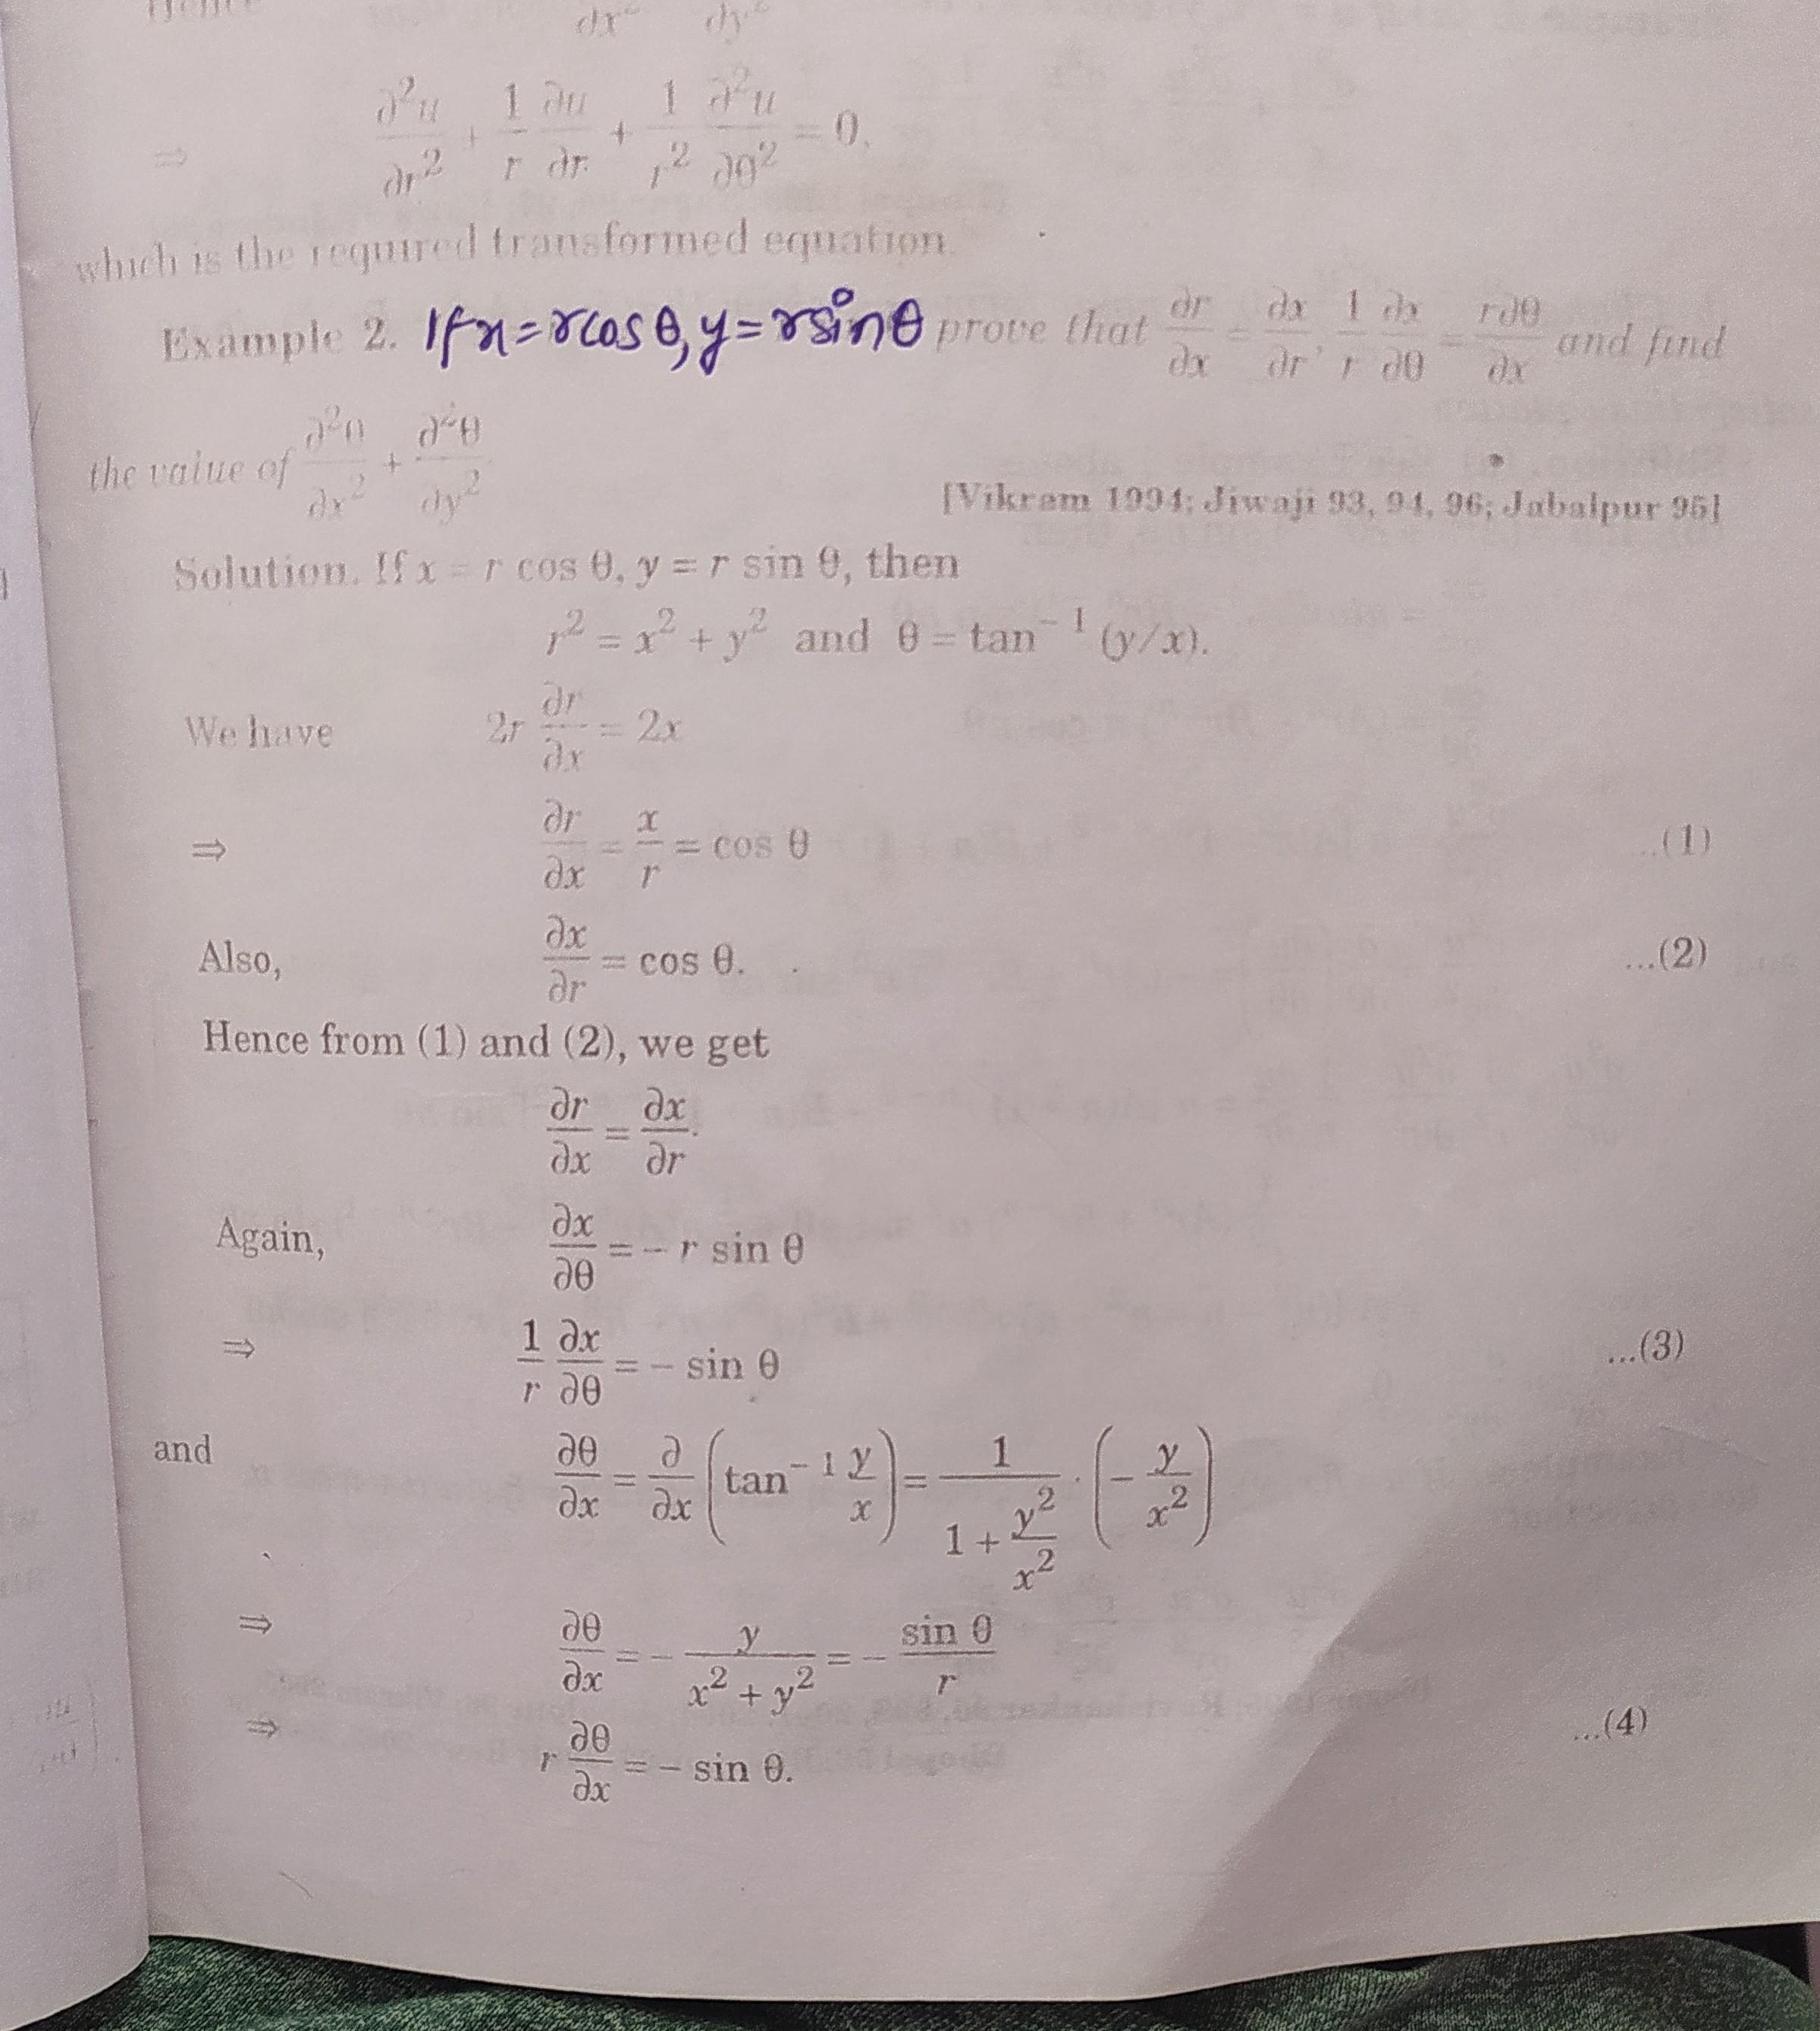 Hence ∂x² ∂y²
⇒ ∂²u/∂r² + 1/r ∂u/∂r + 1/r² ∂²u/∂θ² = 0.
which is the required transformed equation.
Example 2. If x = r cos θ, y = r sin θ prove that ∂r/∂x = ∂x/∂r, 1/r ∂x/∂θ = r∂θ/∂x and find
the value of ∂²θ/∂x² + ∂²θ/∂y²
[Vikram 1994; Jiwaji 93, 94, 96; Jabalpur 95]
Solution. If x = r cos θ, y = r sin θ, then
r² = x² + y² and θ = tan⁻¹ (y/x).
We have 2r ∂r/∂x = 2x
⇒ ∂r/∂x = x/r = cos θ ...(1)
Also, ∂x/∂r = cos θ. ...(2)
Hence from (1) and (2), we get
∂r/∂x = ∂x/∂r.
Again, ∂x/∂θ = – r sin θ
⇒ 1/r ∂x/∂θ = – sin θ ...(3)
and ∂θ/∂x = ∂/∂x (tan⁻¹ y/x) = 1/(1 + y²/x²) · (– y/x²)
⇒ ∂θ/∂x = – y/(x² + y²) = – sin θ/r
⇒ r ∂θ/∂x = – sin θ. ...(4)